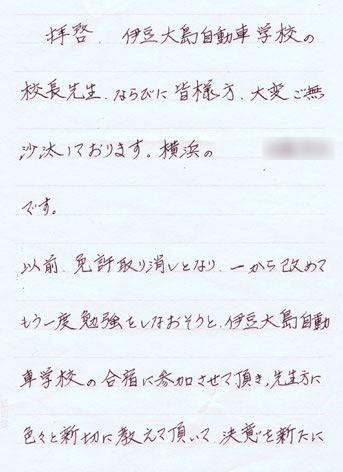 拝啓、伊豆大島自動車学校の
校長先生、ならびに皆様方、大変ご無
沙汰しております。横浜の
です。
以前、免許取り消しとなり、一から改めて
もう一度勉強をしなおそうと、伊豆大島自動
車学校の合宿に参加させて頂き、先生方に
色々と新切に教えて頂いて決意を新たに